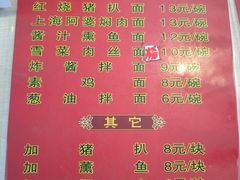 红烧猪扒面 13元/碗
上海阿婆焖肉面 13元/碗
酱汁熏鱼面 12元/碗
雪菜肉丝面 10元/碗
炸酱面 9元/碗
素鸡面 8元/碗
葱油拌面 6元/碗
其它
加猪扒 8元/块
加薰鱼 8元/块